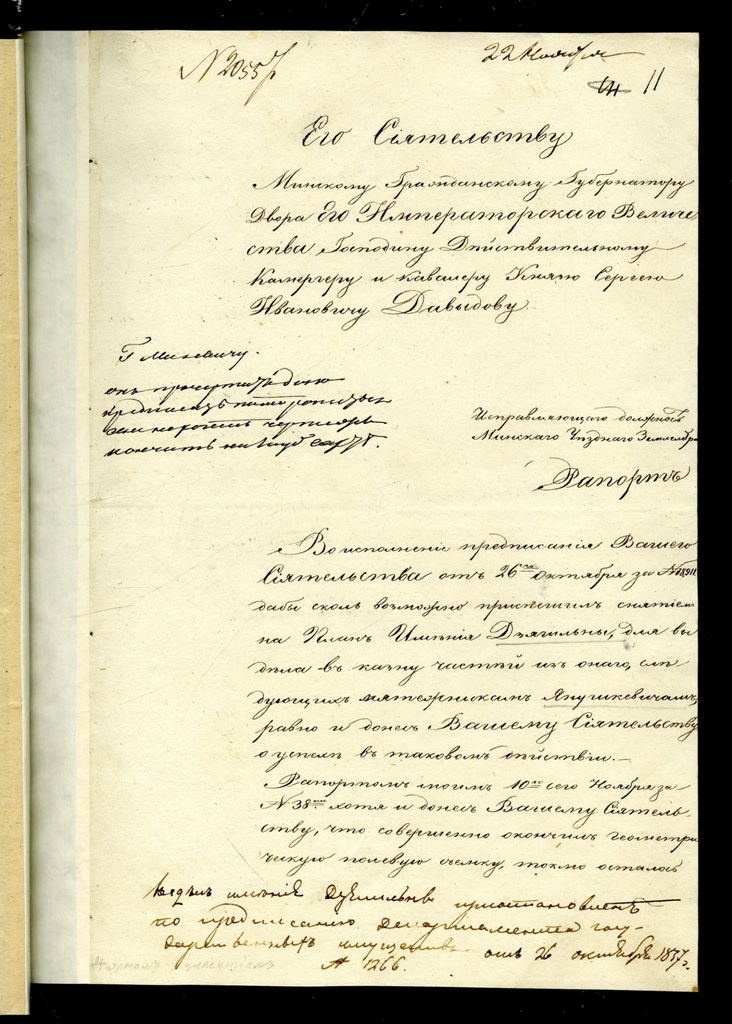 N 2055
22 Ноября
11
Его Сіятельству
Минскому Гражданскому Губернатору
Двора Его Императорскаго Величе-
ства Господину Дѣйствительному
Камергеру и кавалеру Князю Сергею
Ивановичу Давыдову.
Г Миневичу.
Исправляющаго должность
Минскаго Уѣзднаго Землемѣра
Рапортъ
Во исполненіе предписанія Вашего
Сіятельства отъ 26го Октября за N 18911
дабы сколь возможно приспешилъ снятіемъ
на Планъ Имѣнія Дзягильны, для вы
дѣла въ казну частей изъ онаго, слѣ
дующихъ мятежникамъ Янушкевичамъ,
равно и донесъ Вашему Сіятельству
о успехѣ въ таковомъ дѣйствіи.—
Рапортомъ моимъ 10го сего Ноября за
N 38мъ хотя и донесъ Вашему Сіятель-
ству, что совершенно окончилъ геометри
ческую полевую съемку, токмо осталось
имѣнія Дзягильнъ приостановленъ
по предписанію Департамента госу-
дарственныхъ имуществъ отъ 26 октября 1837 г.
N 1266.